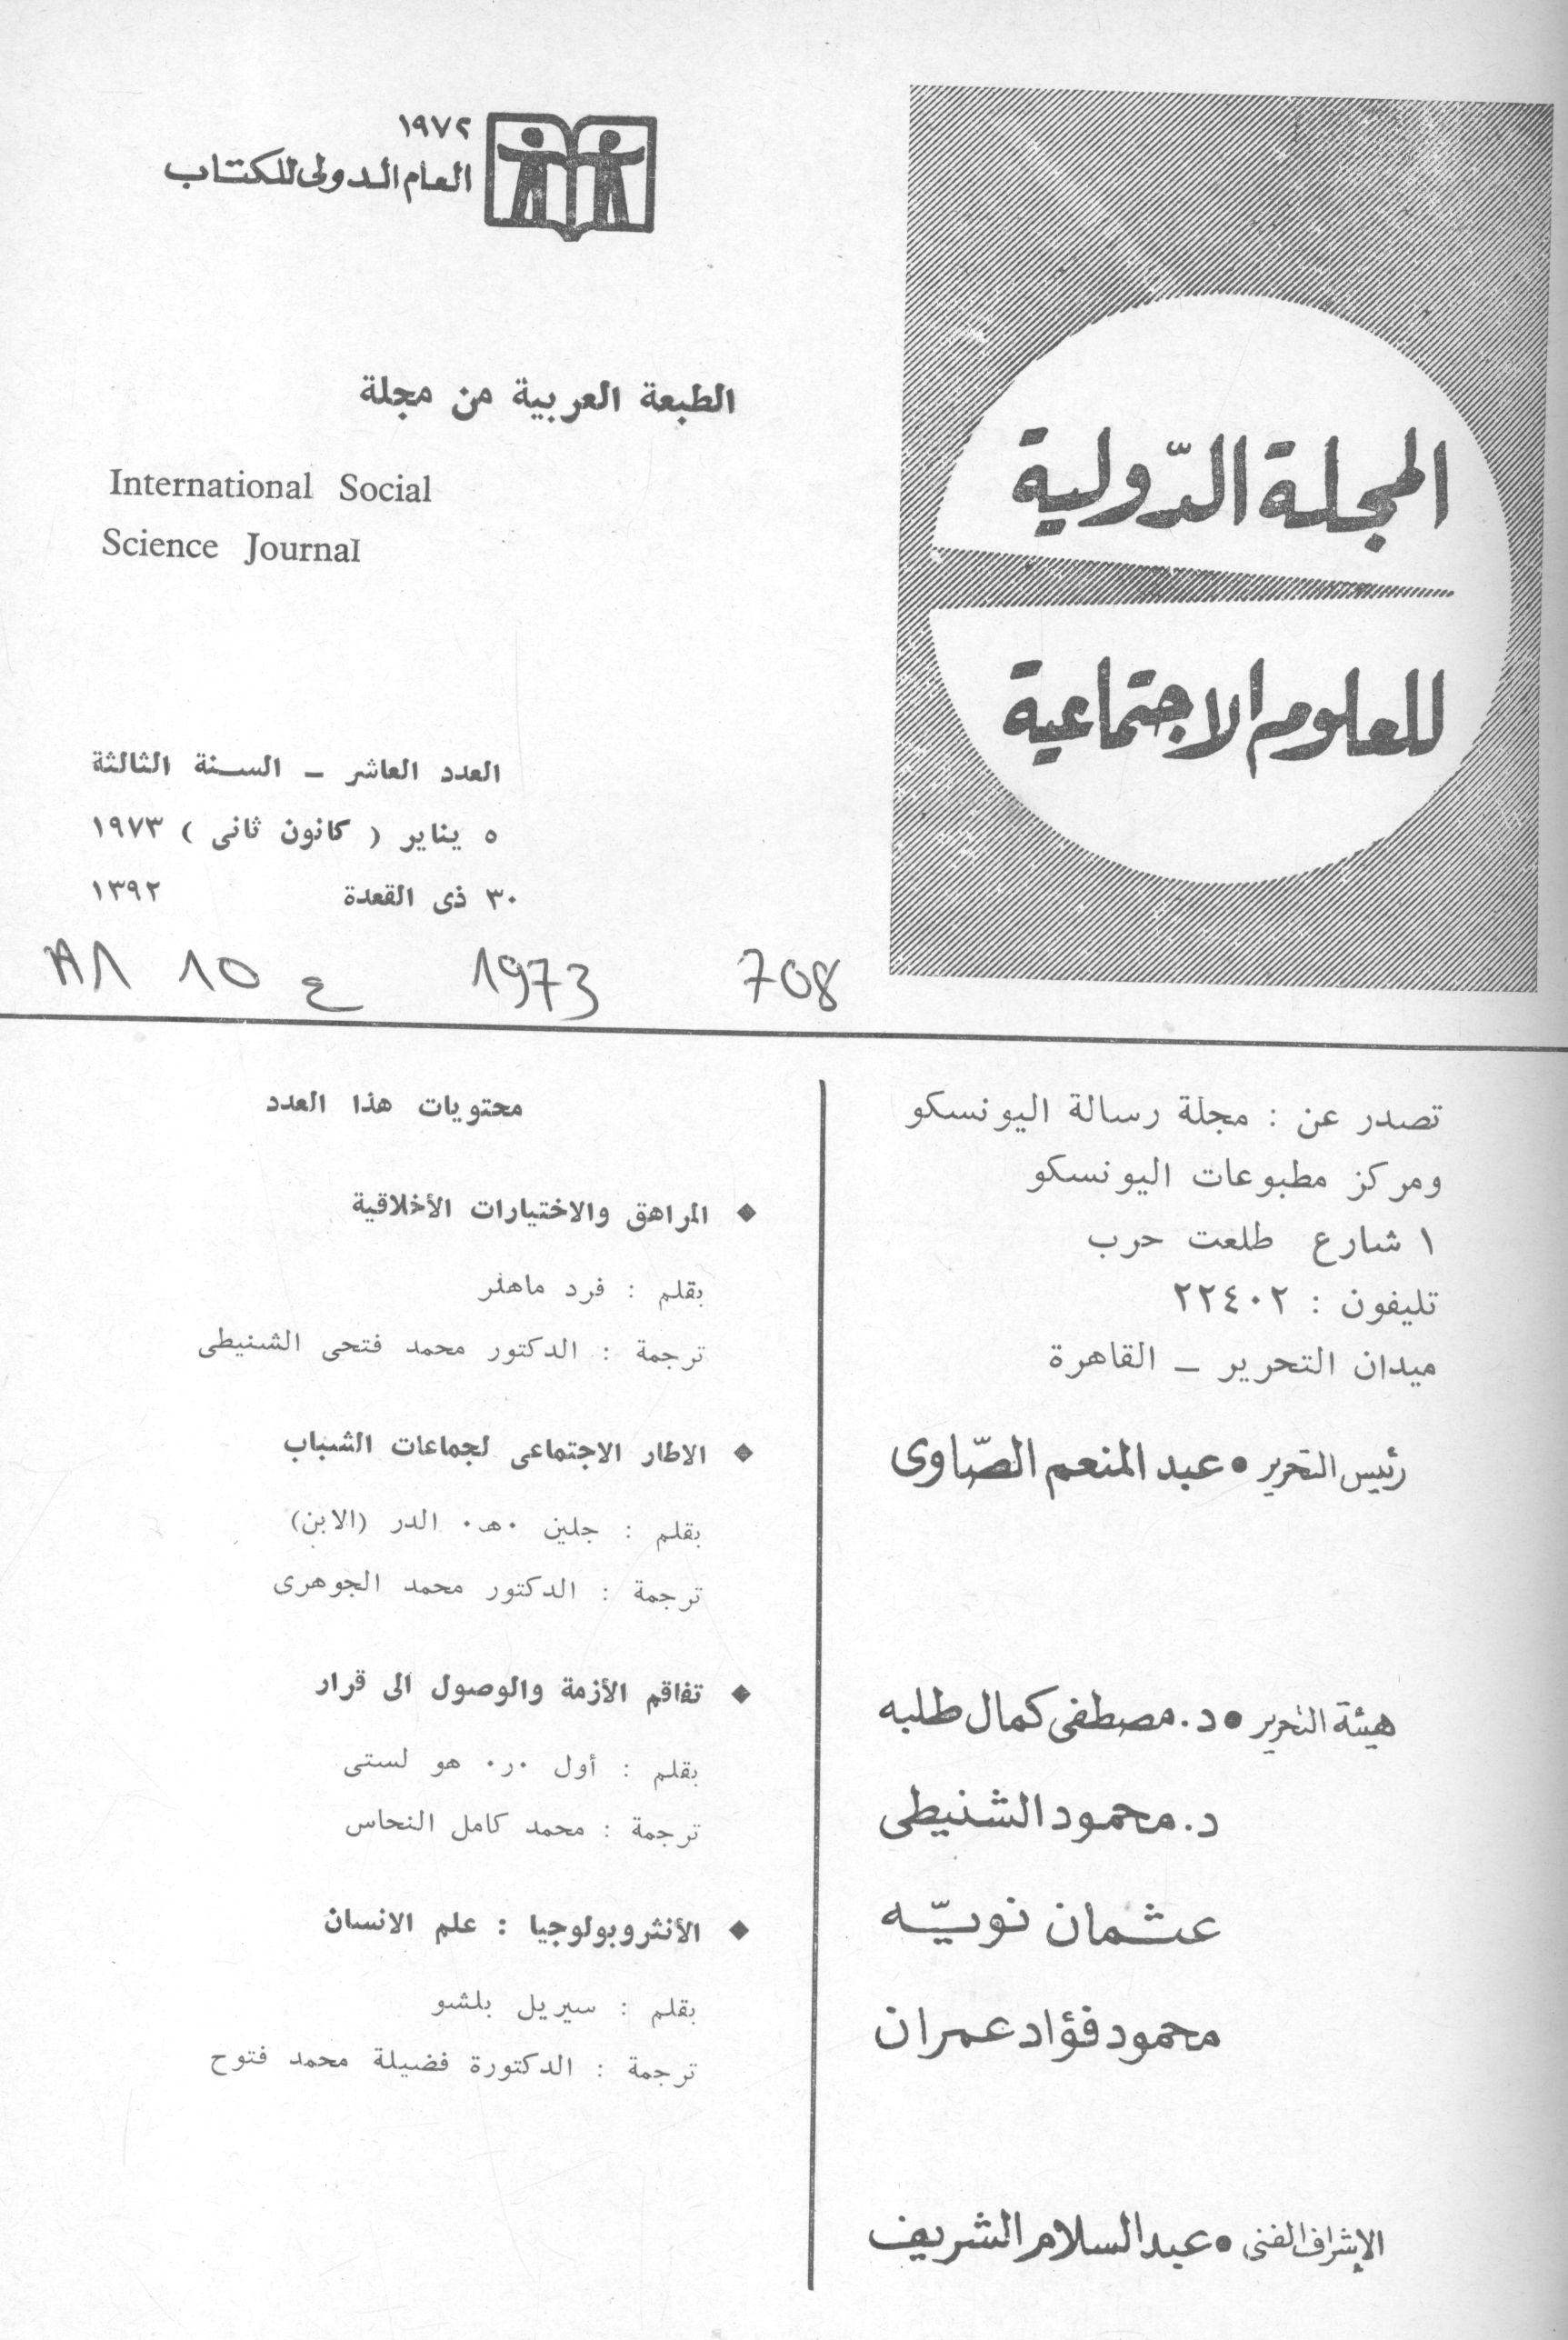 المجلة الدّولية
للعلوم الاجتماعية
١٩٧٢
العام الدولى للكتاب
الطبعة العربية من مجلة
International Social
Science Journal
العدد العاشر – السنة الثالثة
٥ يناير ( كانون ثانى ) ١٩٧٣
٣٠ ذى القعدة ١٣٩٢
708 1973 ع 10
تصدر عن : مجلة رسالة اليونسكو
ومركز مطبوعات اليونسكو
١ شارع طلعت حرب
تليفون : ٢٢٤٠٢
ميدان التحرير – القاهرة
رئيس التحرير • عبد المنعم الصّاوى
هيئة التحرير • د. مصطفى كمال طلبه
د. محمود الشنيطى
عثمان نويّه
محمود فؤاد عمران
الإشراف الفنى • عبد السلام الشريف
محتويات هذا العدد
◆ المراهق والاختيارات الأخلاقية
بقلم : فرد ماهلر
ترجمة : الدكتور محمد فتحى الشنيطى
◆ الاطار الاجتماعى لجماعات الشباب
بقلم : جلين ٠هـ٠ الدر (الابن)
ترجمة : الدكتور محمد الجوهرى
◆ تفاقم الأزمة والوصول الى قرار
بقلم : أول ٠ر٠ هو لستى
ترجمة : محمد كامل النحاس
◆ الأنثروبولوجيا : علم الانسان
بقلم : سيريل بلشو
ترجمة : الدكتورة فضيلة محمد فتوح